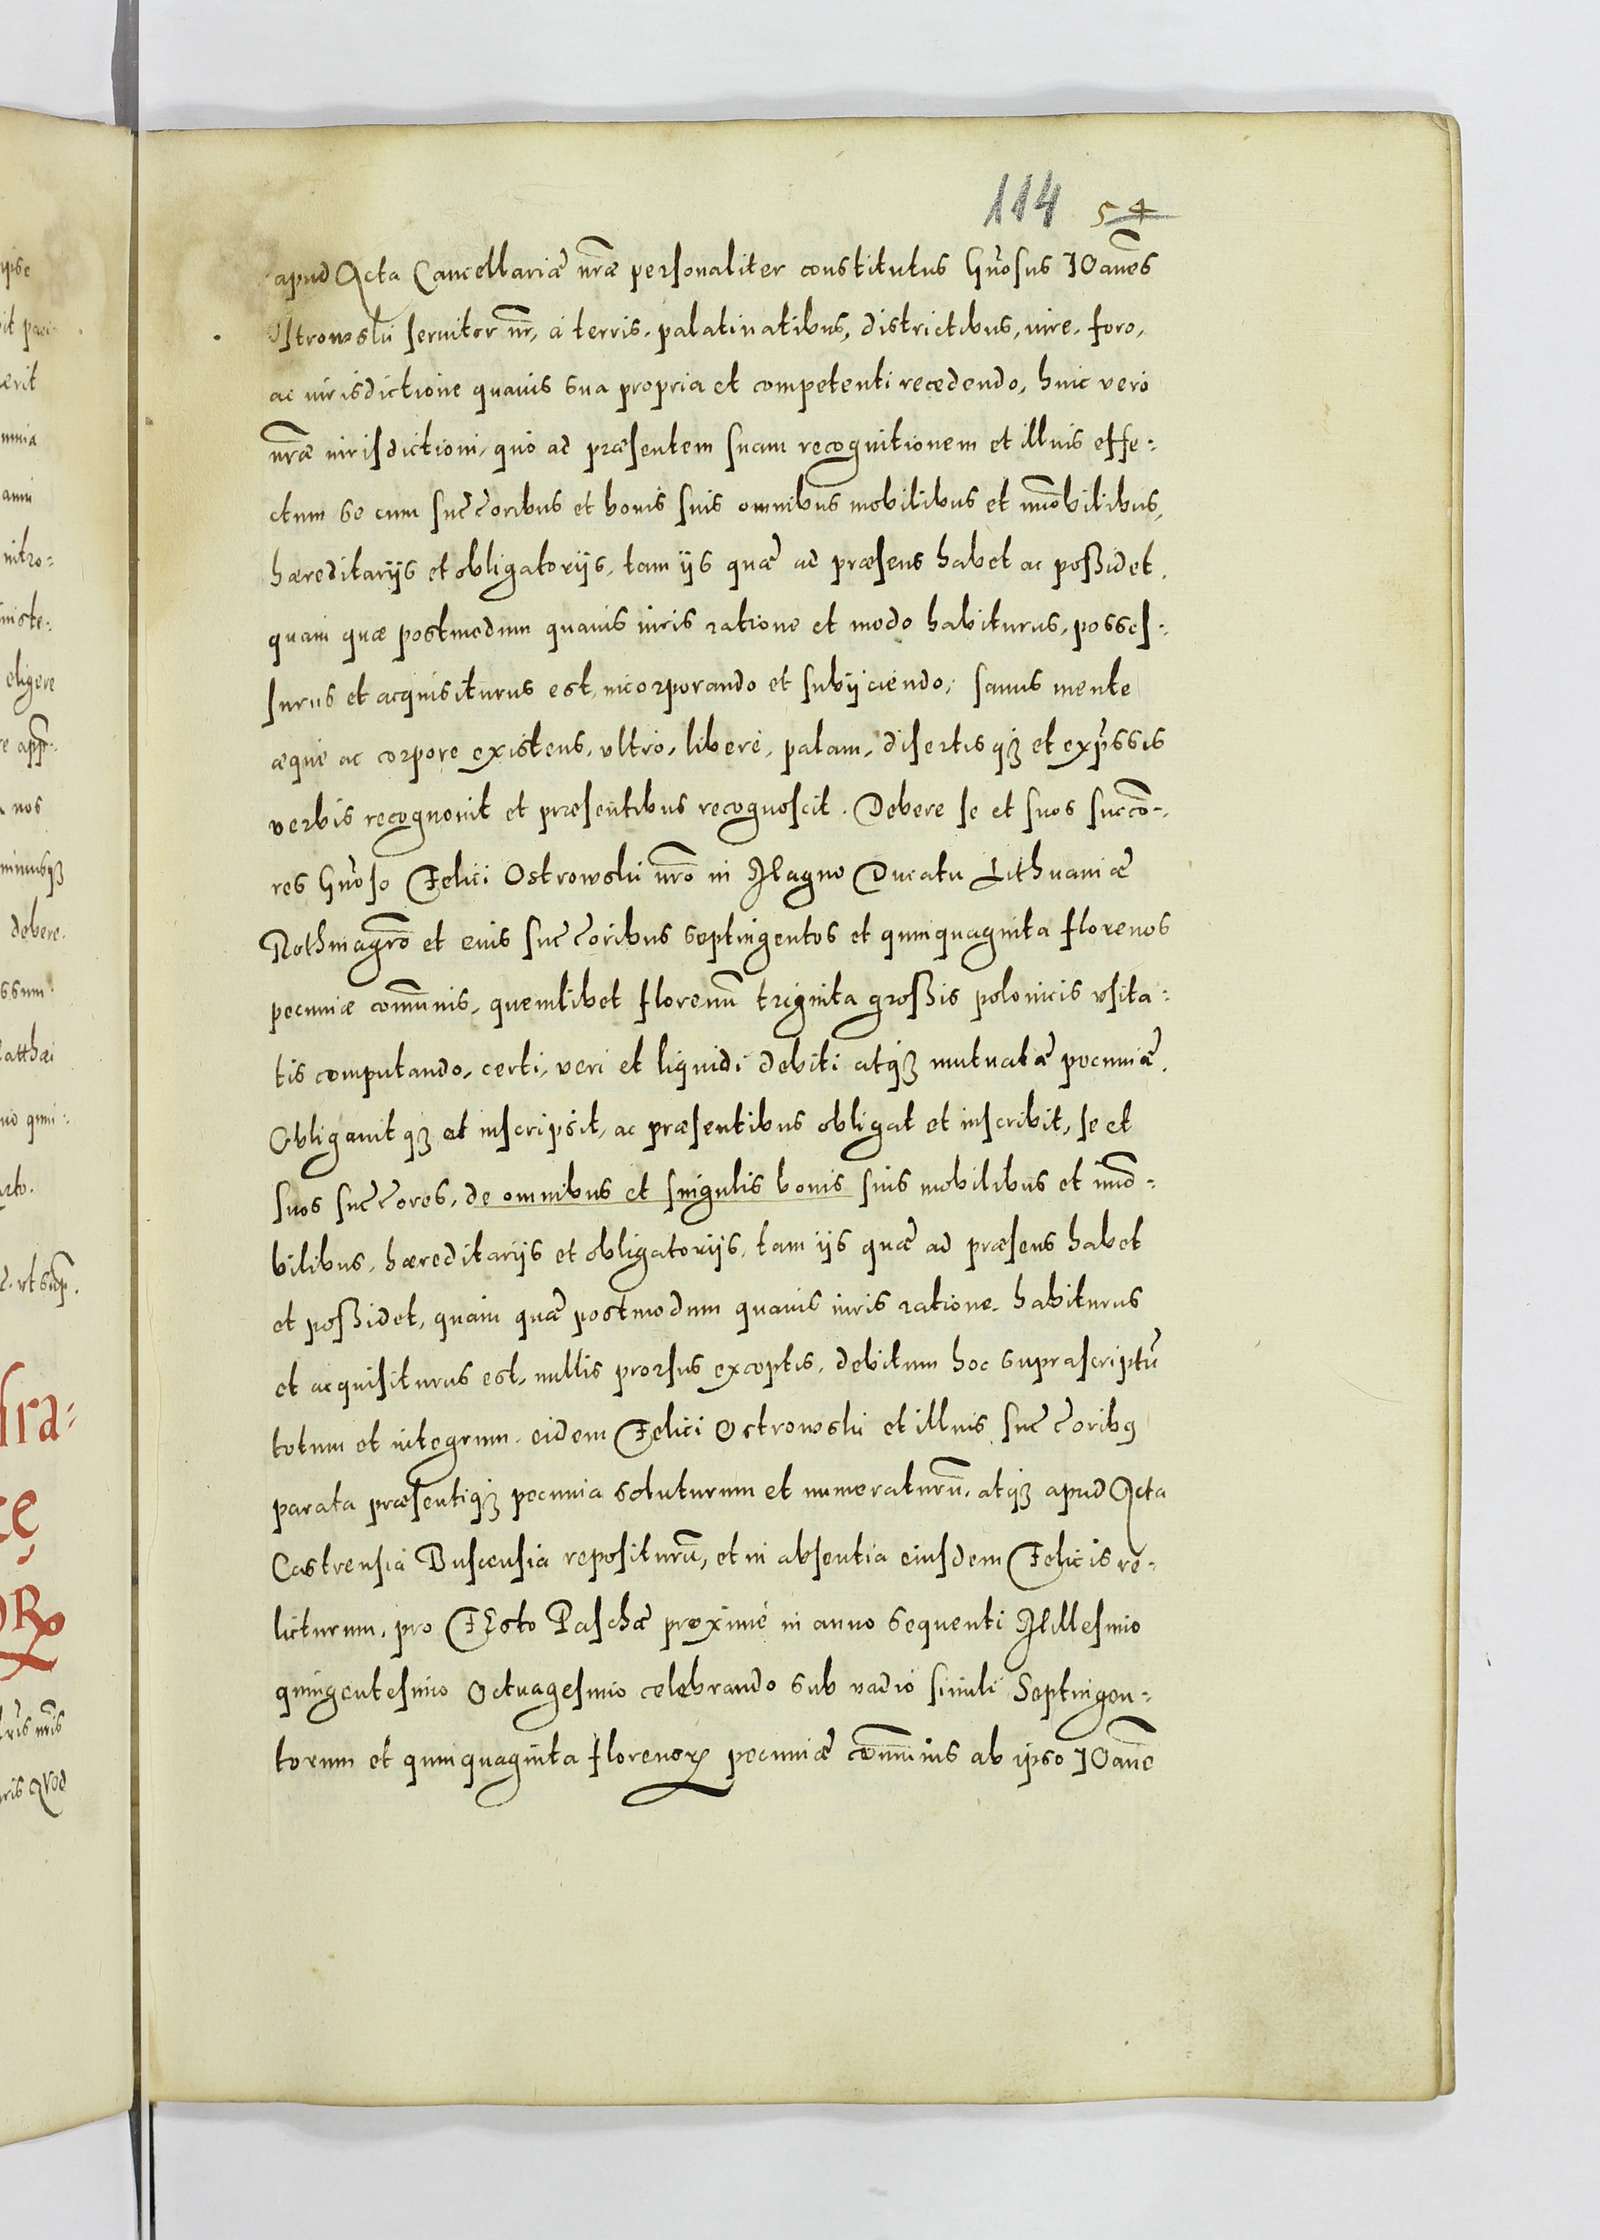 114 54
apud Acta Cancellariæ nr̃æ personaliter constitutus Gñosus IOañes
Ostrowski seruitor nr̃, à terris, palatinatibus, districtibus, iure, foro,
ac iurisdictione quauis sua propria et competenti recedendo, huic verò
nr̃æ iurisdictioni, quò ad præsentem suam recognitionem et illius effe-
ctum se cum suc̃c̃oribus et bonis suis omnibus mobilibus et im̃obilibus,
hæreditarijs et obligatorijs, tam ijs quæ ad præsens habet ac possidet,
quam quæ postmodum quauis iuris ratione et modo habiturus, posses-
surus et acquisiturus est, incorporando et subijciendo, sanus mente
æquè ac corpore existens, vltrò, liberè, palam, disertisqꝫ et exp̃ssis
verbis recognouit et præsentibus recognoscit. Debere se et suos succõ-
res Gñoso Felici Ostrowski nr̃o in Magno Ducatu Lithuaniæ
Rothmagrõ et eius suc̃c̃oribus septingentos et quinquaginta florenos
pecuniæ com̃unis, quemlibet florenũ triginta grossis polonicis vsita-
tis computando, certi, veri et liquidi debiti atqꝫ mutuatæ pecuniæ.
Obligauitqꝫ et inscripsit, ac præsentibus obligat et inscribit, se et
suos suc̃c̃ores, de omnibus et singulis bonis suis mobilibus et im̃o-
bilibus, hæreditarijs et obligatorijs, tam ijs quæ ad præsens habet
et possidet, quàm quæ postmodum quauis iuris ratione habiturus
et acquisiturus est, nullis prorsus exceptis, debitum hoc suprascriptũ
totum et integrum, eidem Felici Ostrowski et illius suc̃c̃oribꝯ
parata præsentiqꝫ pecunia soluturum et numeraturũ, atqꝫ apud Acta
Castrensia Buscensia repositurũ, et in absentia eiusdem Felicis re-
licturum, pro FEsto Paschæ proximè in anno sequenti Millesimo
quingentesimo Octuagesimo celebrando sub vadio simili Septingen-
torum et quinquaginta florenoꝝ pecuniæ com̃unis ab ipso IOañe